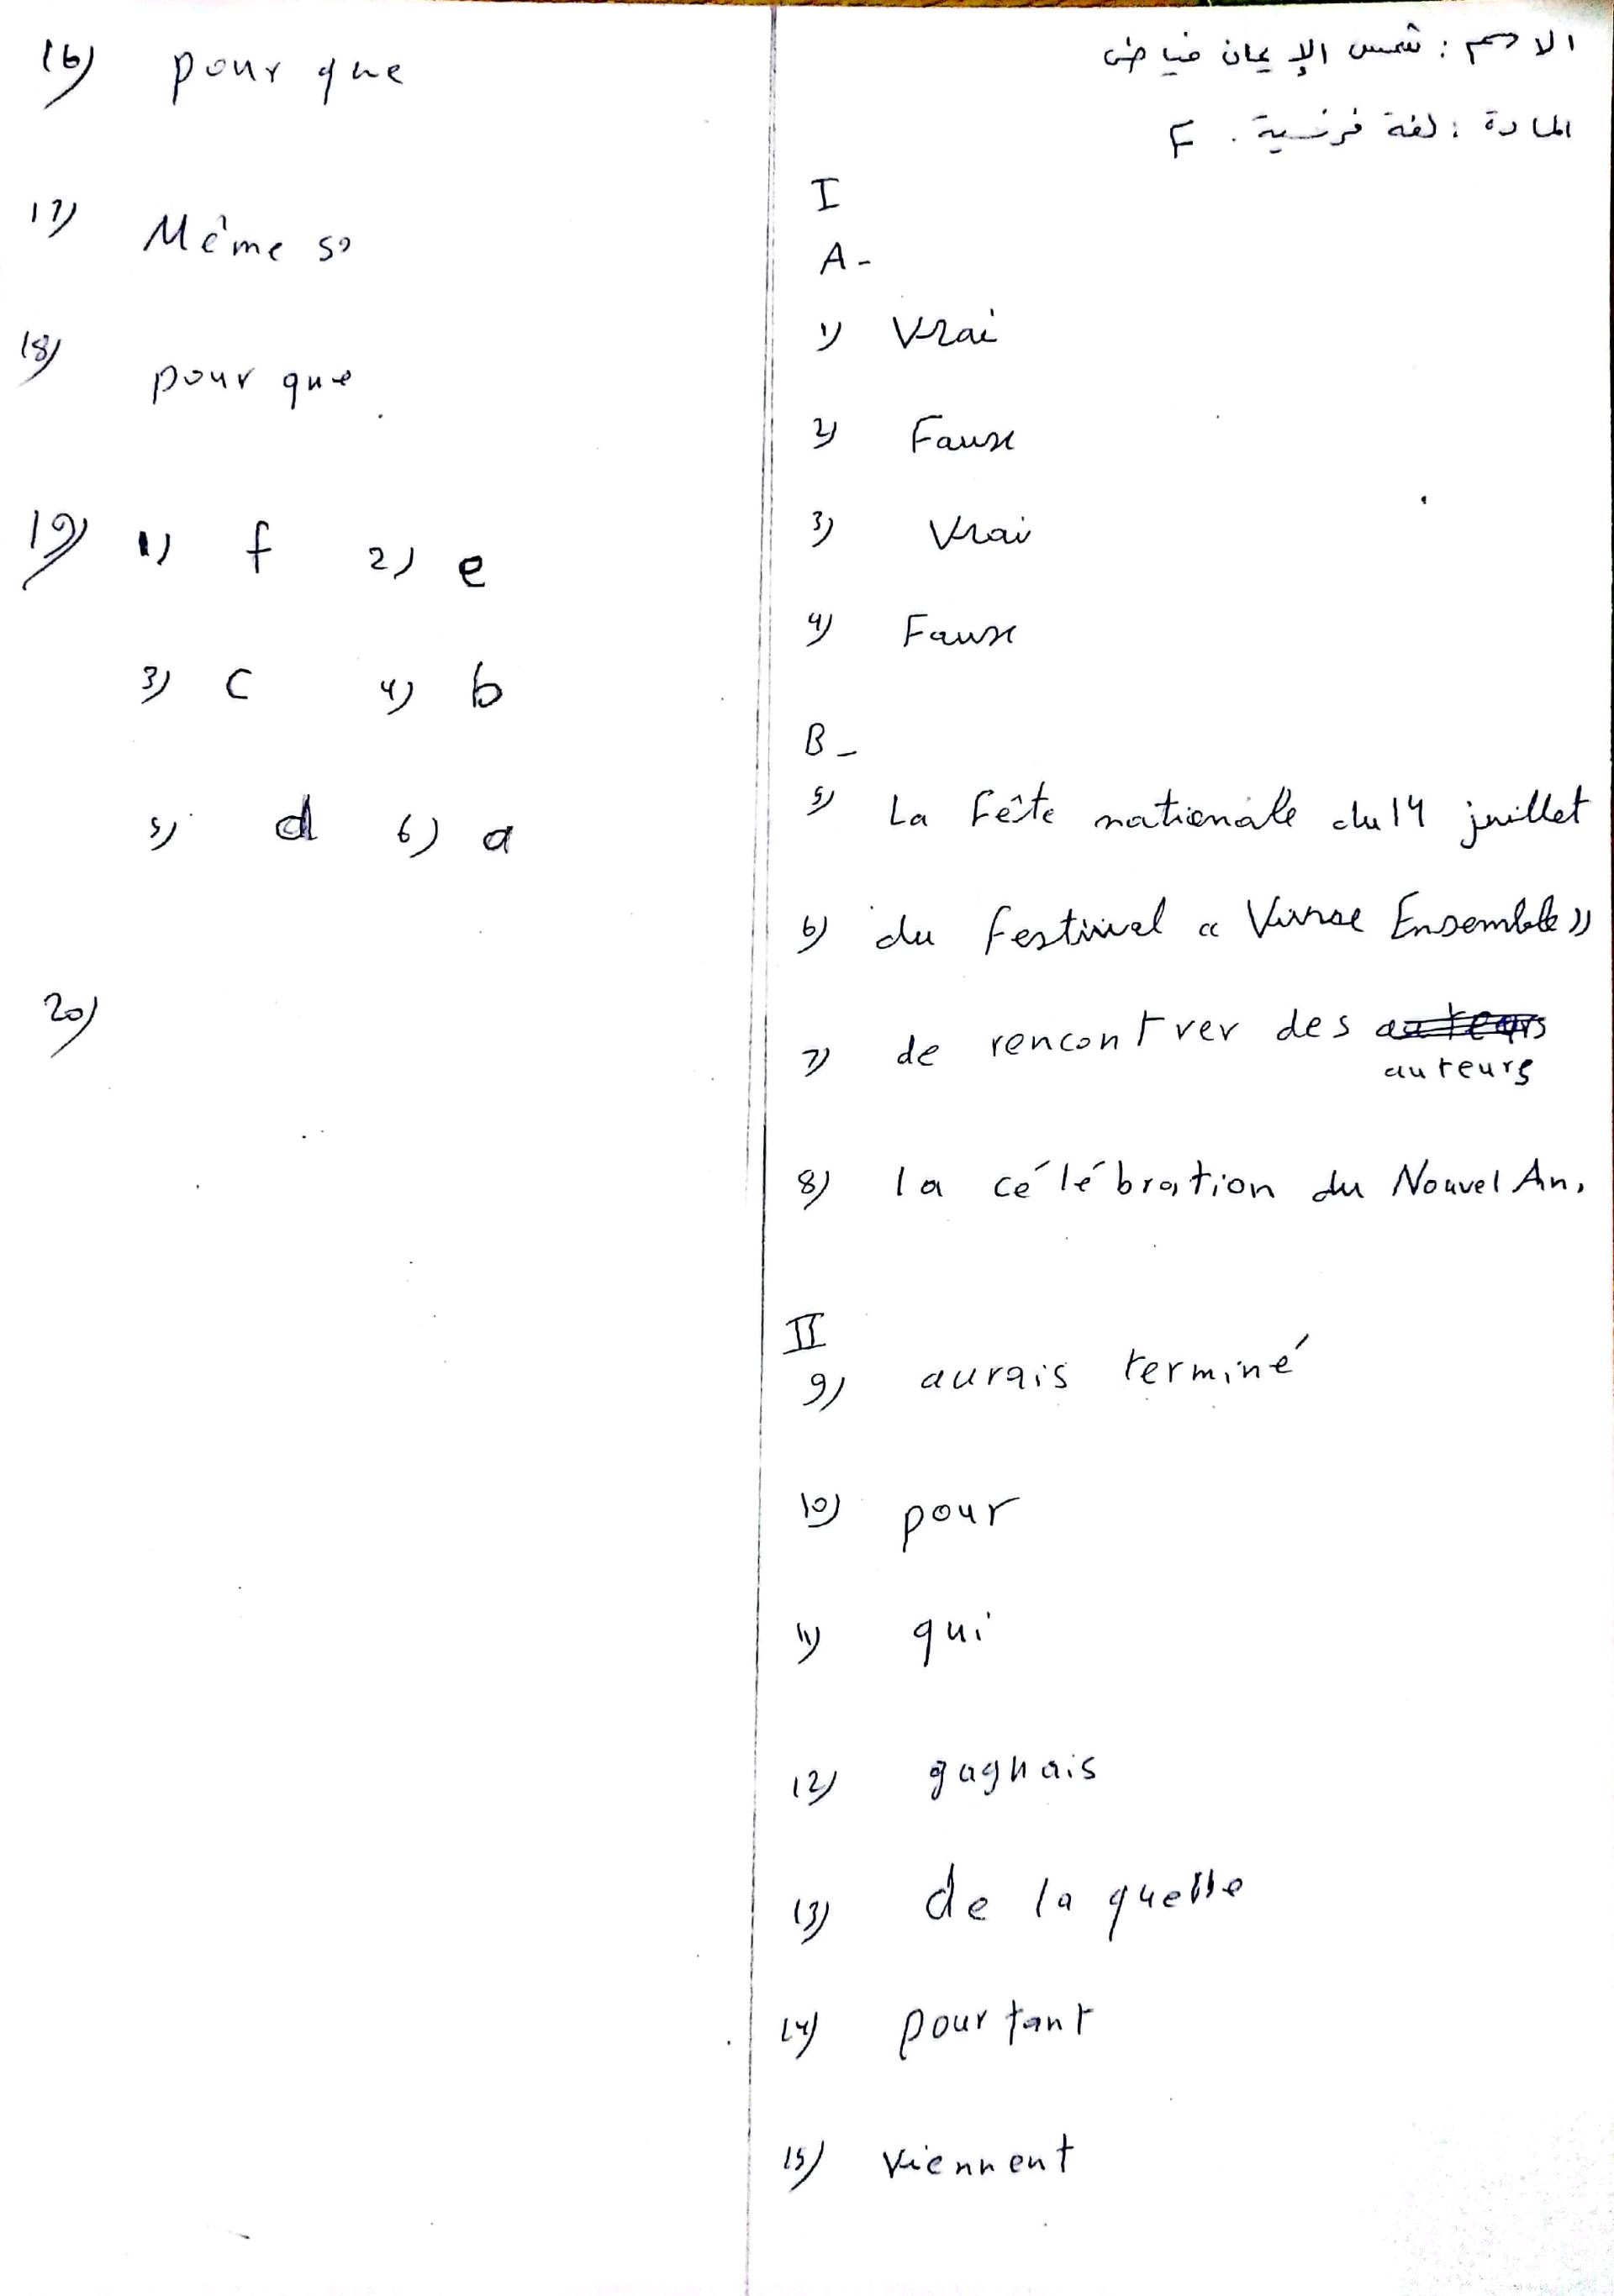 الاسم : شمس الإيمان فياض
المادة : لغة فرنسية . F
I
A -
1) Vrai
2) Fause
3) Vrai
4) Fause
B -
5) La Fête nationale du 14 juillet
6) du festival « Vivre Ensemble »
7) de rencontrer des auteurs
8) la célébration du Nouvel An.
II
9) aurais terminé
10) pour
11) qui
12) gagnais
13) de la quelle
14) pourtant
15) viennent
16) pour que
17) Même si
18) pour que
19) 1) f 2) e
3) c 4) b
5) d 6) a
20)